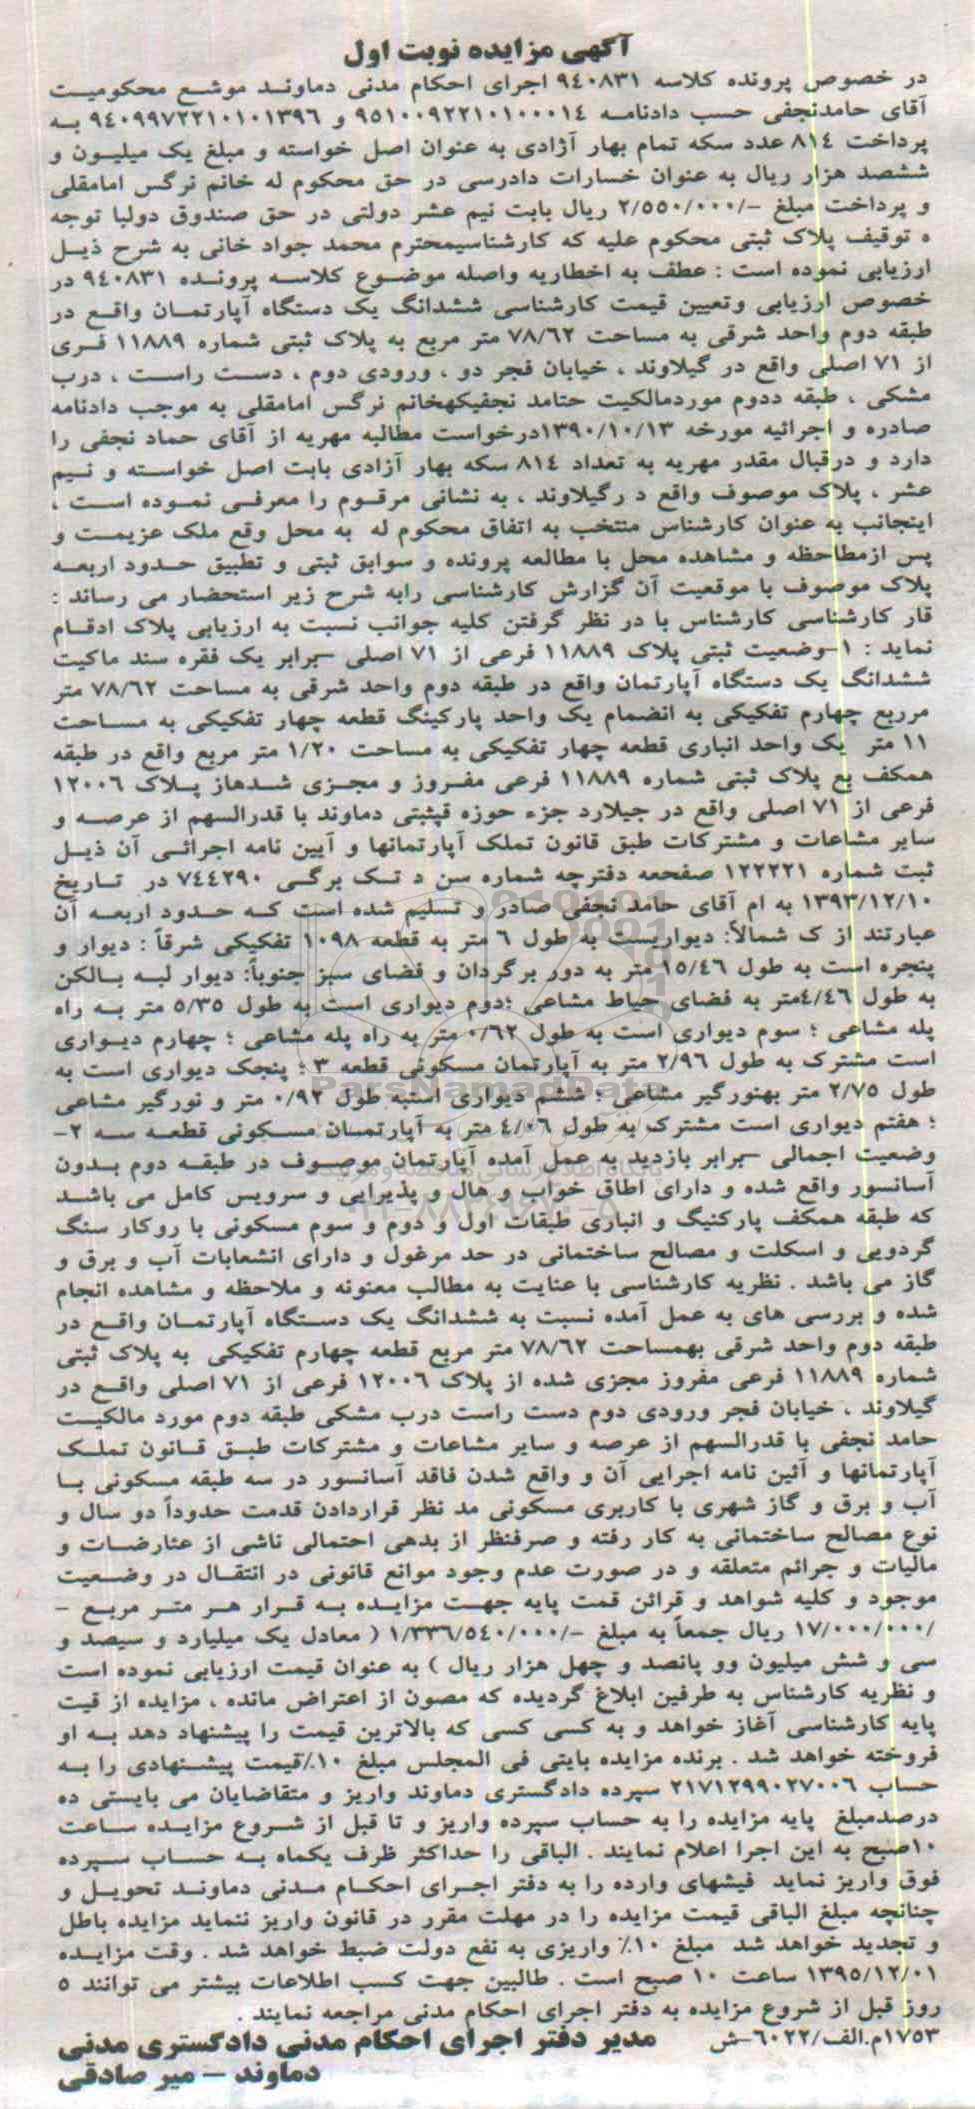 آگهی مزایده نوبت اول
در خصوص پرونده کلاسه ۹٤۰۸۳۱ اجرای احکام مدنی دماوند موشع محکومیت
آقای حامدنجفی حسب دادنامه ۹۵۱۰۰۹۲۲۱۰۱۰۰۰۱٤ و ۹٤۰۹۹۷۲۲۱۰۱۰۱۳۹٦ به
پرداخت ۸۱٤ عدد سکه تمام بهار آزادی به عنوان اصل خواسته و مبلغ یک میلیون و
ششصد هزار ریال به عنوان خسارات دادرسی در حق محکوم له خانم نرگس امامقلی
و پرداخت مبلغ -/۲/۵۵۰/۰۰۰ ریال بابت نیم عشر دولتی در حق صندوق دولبا توجه
ه توقیف پلاک ثبتی محکوم علیه که کارشناسیمحترم محمد جواد خانی به شرح ذیل
ارزیابی نموده است : عطف به اخطاریه واصله موضوع کلاسه پرونده ۹٤۰۸۳۱ در
خصوص ارزیابی وتعیین قیمت کارشناسی ششدانگ یک دستگاه آپارتمان واقع در
طبقه دوم واحد شرقی به مساحت ۷۸/٦۲ متر مربع به پلاک ثبتی شماره ۱۱۸۸۹ فری
از ۷۱ اصلی واقع در گیلاوند ، خیابان فجر دو ، ورودی دوم ، دست راست ، درب
مشکی ، طبقه ددوم موردمالکیت حتامد نجفیکهخانم نرگس امامقلی به موجب دادنامه
صادره و اجرائیه مورخه ۱۳۹۰/۱۰/۱۳درخواست مطالبه مهریه از آقای حماد نجفی را
دارد و درقبال مقدر مهریه به تعداد ۸۱٤ سکه بهار آزادی بابت اصل خواسته و نیم
عشر ، پلاک موصوف واقع د رگیلاوند ، به نشانی مرقوم را معرفی نموده است ،
اینجانب به عنوان کارشناس منتخب به اتفاق محکوم له به محل وقع ملک عزیمت و
پس ازمطاحظه و مشاهده محل با مطالعه پرونده و سوابق ثبتی و تطبیق حدود اربعه
پلاک موصوف با موقعیت آن گزارش کارشناسی رابه شرح زیر استحضار می رساند :
قار کارشناسی کارشناس با در نظر گرفتن کلیه جوانب نسبت به ارزیابی پلاک ادقام
نماید : ۱-وضعیت ثبتی پلاک ۱۱۸۸۹ فرعی از ۷۱ اصلی –برابر یک فقره سند ماکیت
ششدانگ یک دستگاه آپارتمان واقع در طبقه دوم واحد شرقی به مساحت ۷۸/٦۲ متر
مرربع چهارم تفکیکی به انضمام یک واحد پارکینگ قطعه چهار تفکیکی به مساحت
۱۱ متر یک واحد انباری قطعه چهار تفکیکی به مساحت ۱/۲۰ متر مربع واقع در طبقه
همکف بع پلاک ثبتی شماره ۱۱۸۸۹ فرعی مفروز و مجزی شدهاز پلاک ۱۲۰۰٦
فرعی از ۷۱ اصلی واقع در جیلارد جزء حوزه قپثبتی دماوند با قدرالسهم از عرصه و
سایر مشاعات و مشترکات طبق قانون تملک آپارتمانها و آیین نامه اجرائی آن ذیل
ثبت شماره ۱۲۲۲۲۱ صفحعه دفترچه شماره سن د تک برگی ۷٤٤۲۹۰ در تاریخ
۱۳۹۳/۱۲/۱۰ به ام آقای حامد نجفی صادر و تسلیم شده است که حدود اربعه آن
عبارتند از ک شمالاً: دیواریست به طول ٦ متر به قطعه ۱۰۹۸ تفکیکی شرقاً : دیوار و
پنجره است به طول ۱۵/٤٦ متر به دور برگردان و فضای سبز جنوباً: دیوار لبه بالکن
به طول ٤/٤٦متر به فضای حیاط مشاعی ؛دوم دیواری است به طول ۵/۳۵ متر به راه
پله مشاعی ؛ سوم دیواری است به طول ۰/٦۲ متر به راه پله مشاعی ؛ چهارم دیواری
است مشترک به طول ۲/۹٦ متر به آپارتمان مسکونی قطعه ۳ ؛ پنجک دیواری است به
طول ۲/۷۵ متر بهنورگیر مشاعی ؛ ششم دیواری استبه طول ۰/۹۲ متر و نورگیر مشاعی
؛ هفتم دیواری است مشترک به طول ٤/۰٦ متر به آپارتمان مسکونی قطعه سه ۲-
وضعیت اجمالی –برابر بازدید به عمل آمده آپارتمان موصوف در طبقه دوم بدون
آسانسور واقع شده و دارای اطاق خواب و هال و پذیرایی و سرویس کامل می باشد
که طبقه همکف پارکنیگ و انباری طبقات اول و دوم و سوم مسکونی با روکار سنگ
گردویی و اسکلت و مصالح ساختمانی در حد مرغول و دارای انشعابات آب و برق و
گاز می باشد . نظریه کارشناسی با عنایت به مطالب معنونه و ملاحظه و مشاهده انجام
شده و بررسی های به عمل آمده نسبت به ششدانگ یک دستگاه آپارتمان واقع در
طبقه دوم واحد شرقی بهمساحت ۷۸/٦۲ متر مربع قطعه چهارم تفکیکی به پلاک ثبتی
شماره ۱۱۸۸۹ فرعی مفروز مجزی شده از پلاک ۱۲۰۰٦ فرعی از ۷۱ اصلی واقع در
گیلاوند ، خیابان فجر ورودی دوم دست راست درب مشکی طبقه دوم مورد مالکیت
حامد نجفی با قدرالسهم از عرصه و سایر مشاعات و مشترکات طبق قانون تملک
آپارتمانها و آئین نامه اجرایی آن و واقع شدن فاقد آسانسور در سه طبقه مسکونی با
آب و برق و گاز شهری با کاربری مسکونی مد نظر قراردادن قدمت حدوداً دو سال و
نوع مصالح ساختمانی به کار رفته و صرفنظر از بدهی احتمالی ناشی از عئارضات و
مالیات و جرائم متعلقه و در صورت عدم وجود موانع قانونی در انتقال در وضعیت
موجود و کلیه شواهد و قرائن قمت پایه جهت مزایده به قرار هر متر مربع -
/۱۷/۰۰۰/۰۰۰ ریال جمعاً به مبلغ -/۱/۳۳٦/۵٤۰/۰۰۰ ( معادل یک میلیارد و سیصد و
سی و شش میلیون وو پانصد و چهل هزار ریال ) به عنوان قیمت ارزیابی نموده است
و نظریه کارشناس به طرفین ابلاغ گردیده که مصون از اعتراض مانده ، مزایده از قیت
پایه کارشناسی آغاز خواهد و به کسی کسی که بالاترین قیمت را پیشنهاد دهد به او
فروخته خواهد شد . برنده مزایده بایتی فی المجلس مبلغ ۱۰٪قیمت پیشنهادی را به
حساب ۲۱۷۱۲۹۹۰۲۷۰۰٦ سپرده دادگستری دماوند واریز و متقاضایان می بایستی ده
درصدمبلغ پایه مزایده را به حساب سپرده واریز و تا قبل از شروع مزایده ساعت
۱۰صبح به این اجرا اعلام نمایند . الباقی را حداکثر ظرف یکماه به حساب سپرده
فوق واریز نماید فیشهای وارده را به دفتر اجرای احکام مدنی دماوند تحویل و
چنانچه مبلغ الباقی قیمت مزایده را در مهلت مقرر در قانون واریز ننماید مزایده باطل
و تجدید خواهد شد مبلغ ۱۰٪ واریزی به نفع دولت ضبط خواهد شد . وقت مزایده
۱۳۹۵/۱۲/۰۱ ساعت ۱۰ صبح است . طالبین جهت کسب اطلاعات بیشتر می توانند ۵
روز قبل از شروع مزایده به دفتر اجرای احکام مدنی مراجعه نمایند .
۱۷۵۳م.الف/٦۰۲۲-ش مدیر دفتر اجرای احکام مدنی دادگستری مدنی
دماوند – میر صادقی
ParsNamadData